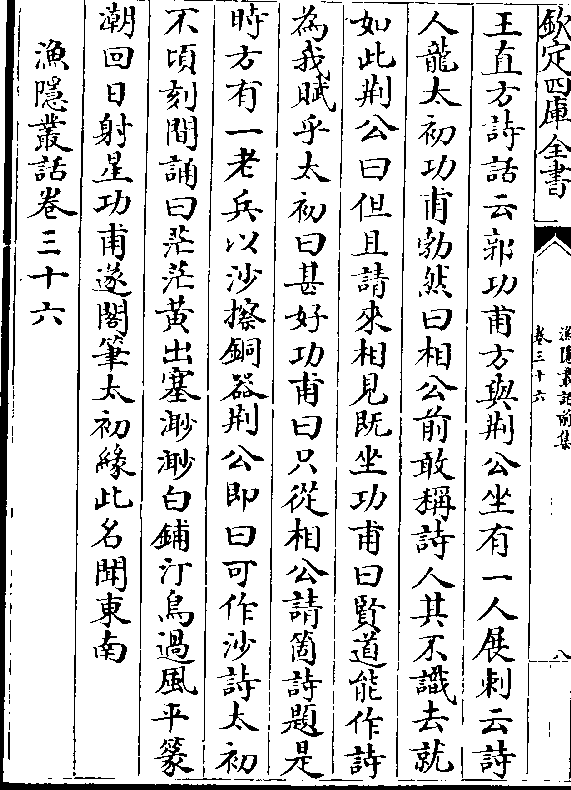 欽定四庫全書
漁隱叢話前集
卷三十六
八
王直方詩話云郭功甫方與荆公坐有一人展刺云詩
人龍太初功甫勃然曰相公前敢稱詩人其不識去就
如此荆公曰但且請來相見既坐功甫曰賢道能作詩
為我賦乎太初曰甚好功甫曰只從相公請箇詩題是
時方有一老兵以沙擦銅器荆公即曰可作沙詩太初
不頃刻間誦曰茫茫黄出塞渺渺白鋪汀鳥過風平篆
潮回日射星功甫遂閣筆太初緣此名聞東南
漁隱叢話卷三十六